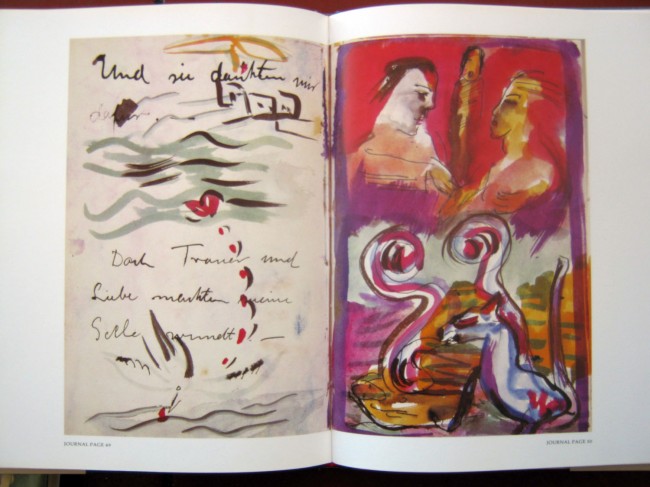 Und sie dankten mir
Doch Trauer und
Liebe machten meine
JOURNAL PAGE
JOURNAL PAGE